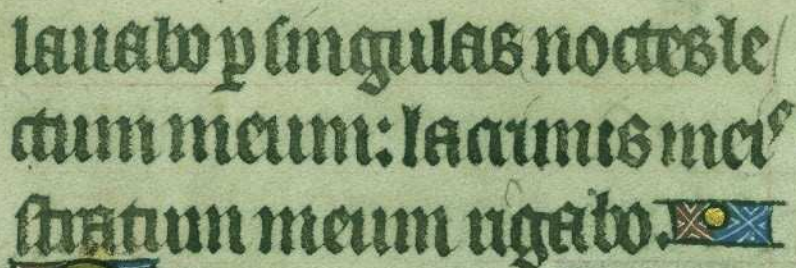 lauabo ꝑ singulas noctes le
ctum meum: lacrimis meis
stratum meum rigabo.